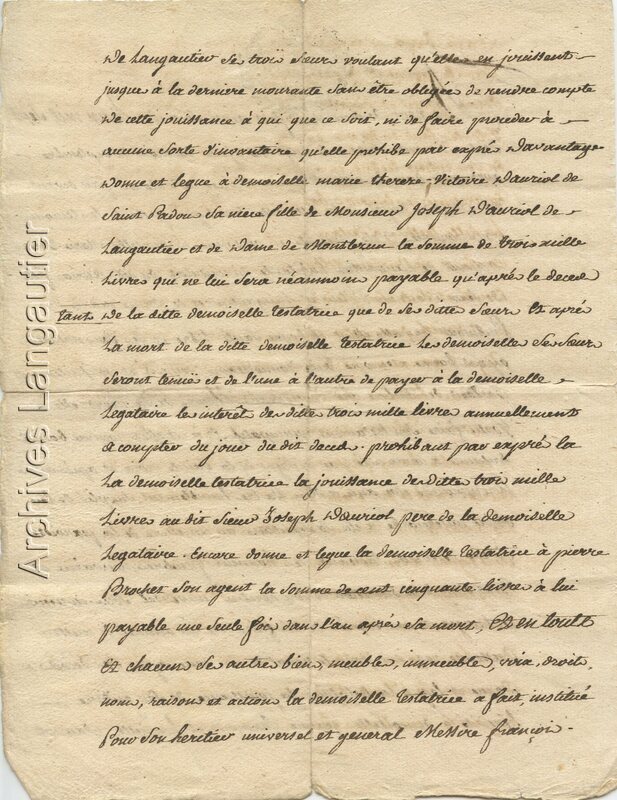 De Langautier se trois sœur voulant qu'elle en jouissent
jusque à la derniere mourante sans être obligée de rendre compte
de cette jouissance à qui que ce soit, ni de faire proceder à
aucune sorte d'invantaire qu'elle prohibe par exprés davantage
donne et legue à demoiselle marie therese victoire Dauriol de
Saint Padou sa niece fille de Monsieur Joseph Dauriol de
Langautier et de dame de Montbrun la somme de trois mille
livres qui ne lui sera néanmoin payable qu'aprés le deced
tant de la ditte demoiselle testatrice que de se ditte sœur et aprés
la mort de la ditte demoiselle testatrice le demoiselle se sœur
seront tenuë et de l'une à l'autre de payer à la demoiselle
legataire le interêt de ditte trois mille livre annuellement
a compter du jour du dit deced. prohibant par expré la
la demoiselle testatrice la jouissance de ditte trois mille
livres au dit sieur Joseph Dauriol pere de la demoiselle
legataire. Encore donne et legue la demoiselle testatrice à pierre
Brochet son agent la somme de cent cinquante livre à lui
payable une seule foi dans l'an aprés sa mort, Et en tout
Et chacun se autre bien, meuble, immeuble, voix, droit,
nom, raison et action la demoiselle testatrice a fait, institué
Pour son heritier universel et general Messire françoi.
Archives Langautier